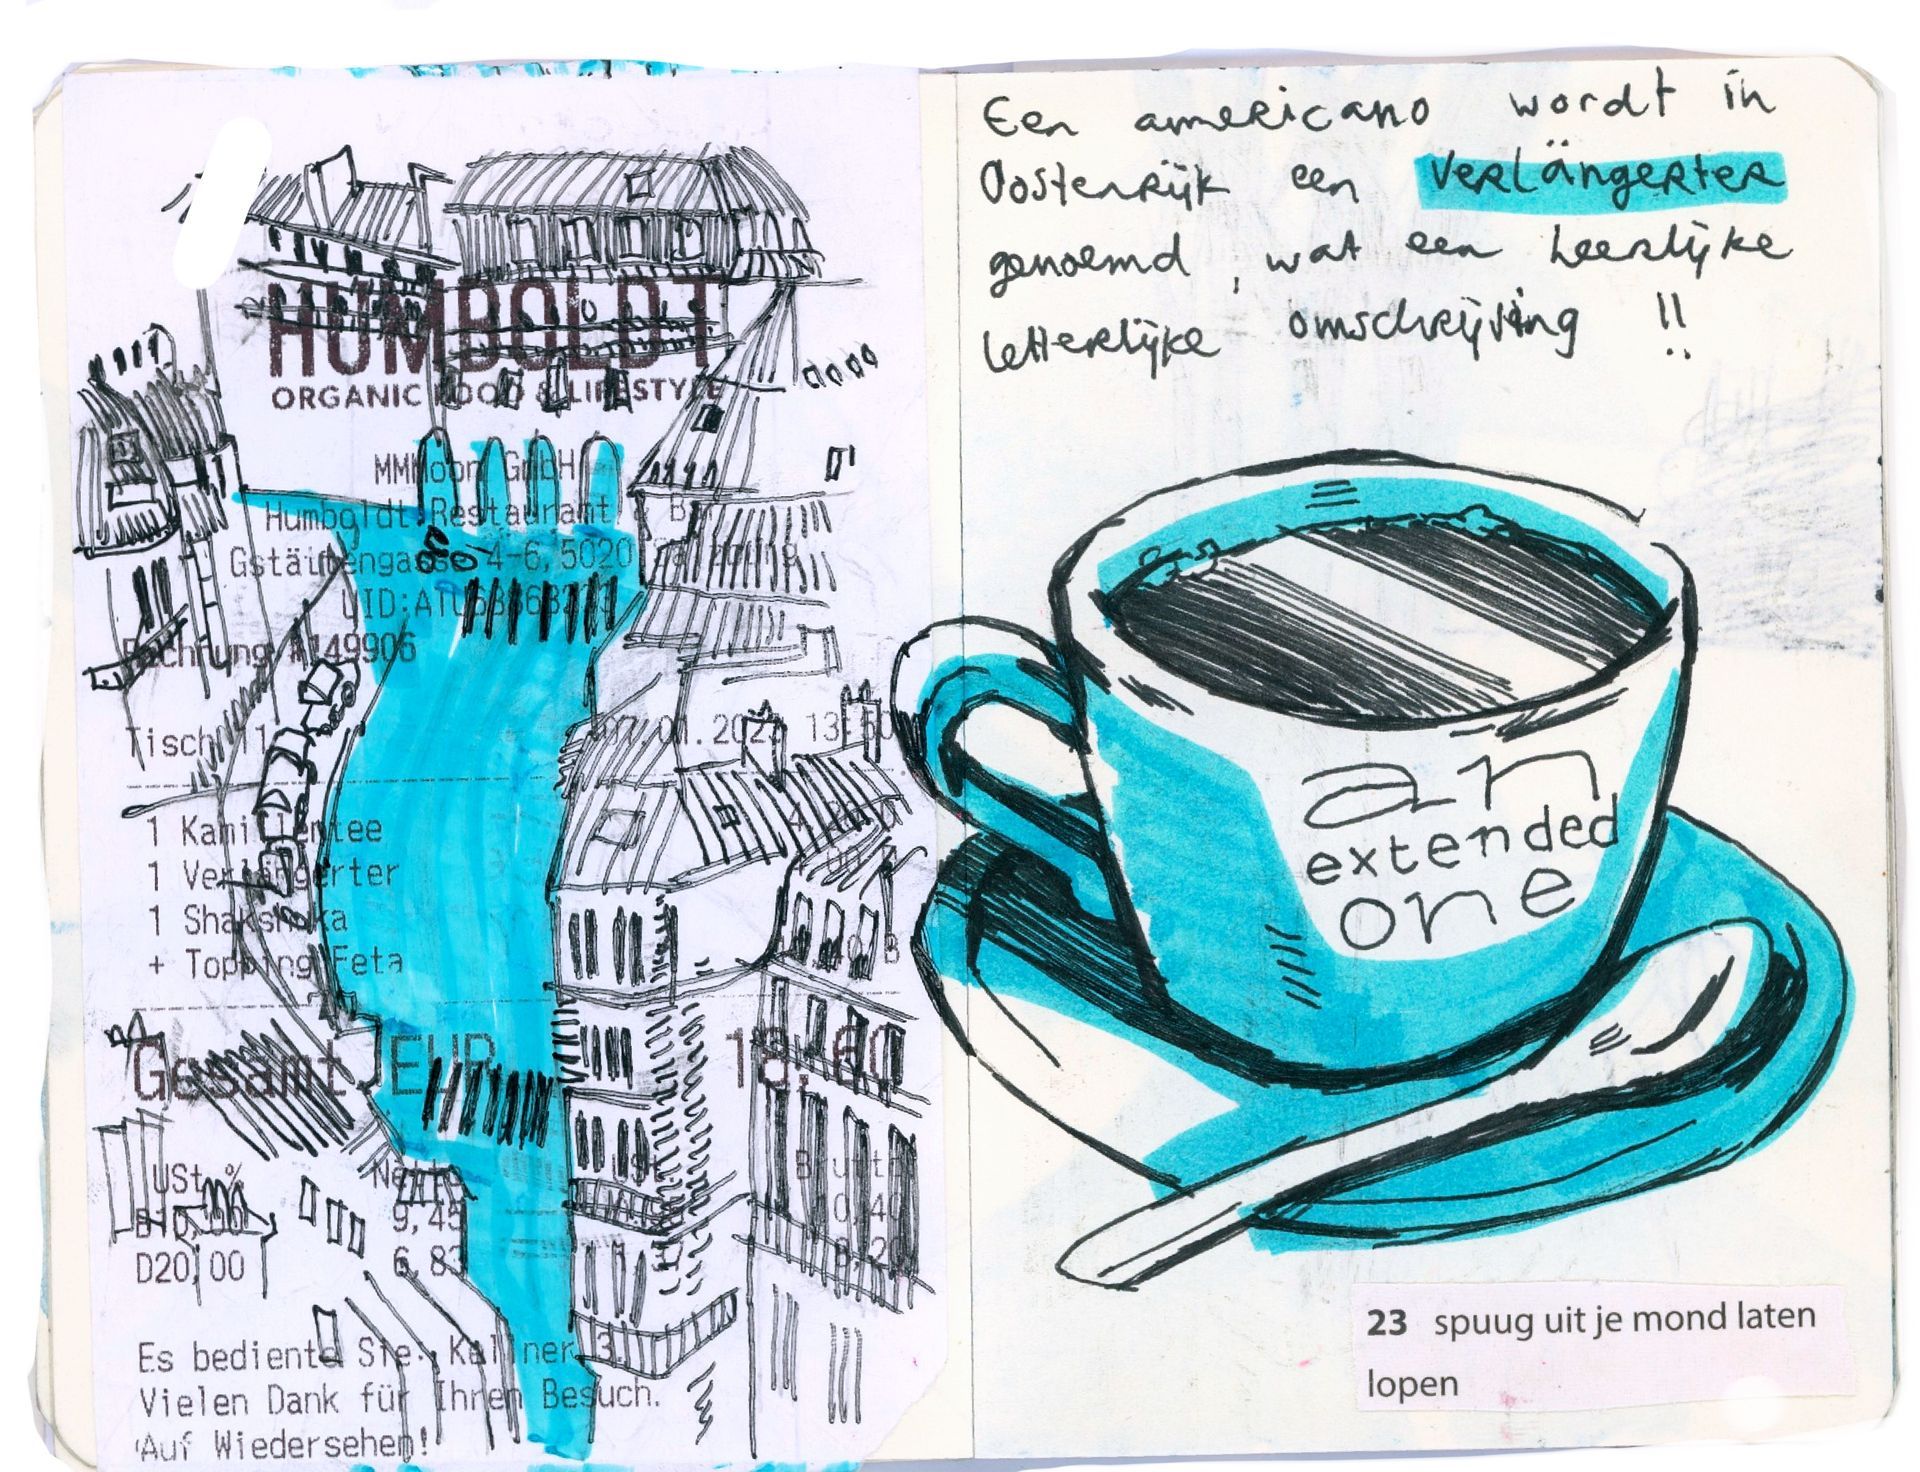 HUMBOLDT
ORGANIC FOOD & LIFESTYLE
GmbH
Humboldt Restaurant
4-6, 5020
Rechnung A149906
Tisch 11
1 Kamillentee
1 Verlängerter
1 Shakshuka
+ Topping Feta
Gesamt EUR 18.60
USt % Netto USt Brutto
9,45
D20,00 6,83
Es bediente Sie Kellner 3.
Vielen Dank für Ihren Besuch.
Auf Wiedersehen!
Een americano wordt in
Oostenrijk een verlängerter
genoemd, wat een heerlijke
letterlijke omschrijving !!
an
extended
one
23 spuug uit je mond laten
lopen